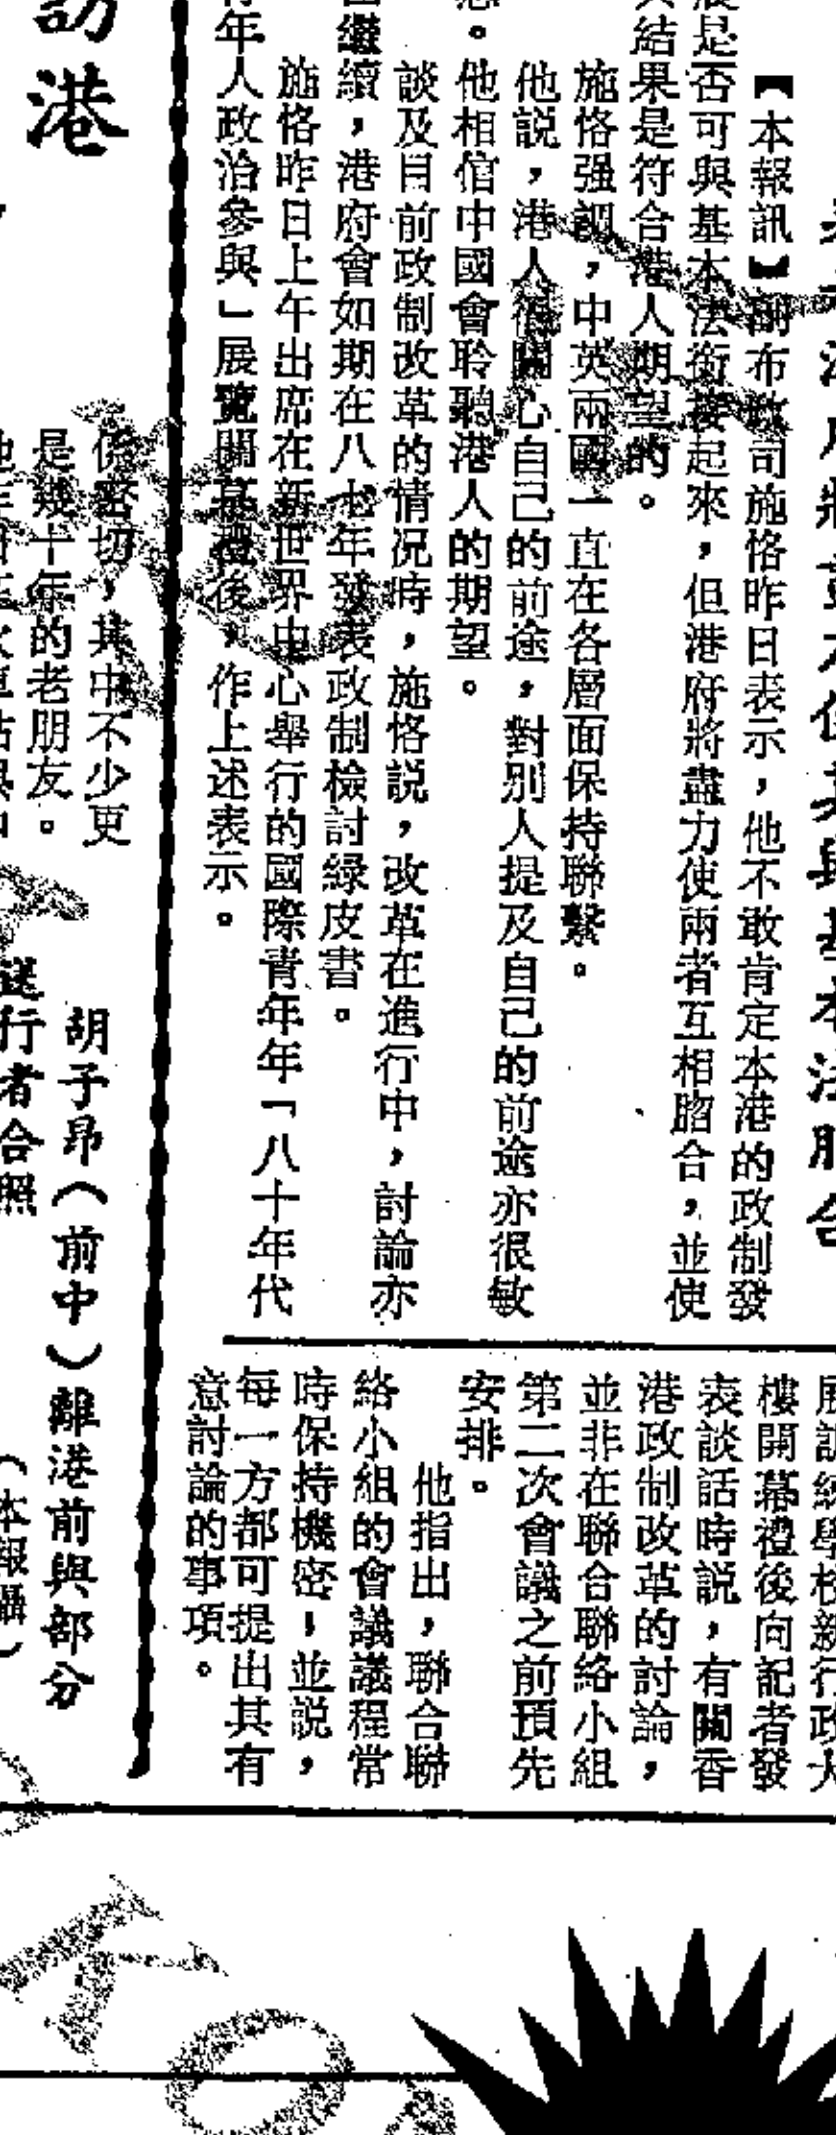 【本報訊】副布政司施恪昨日表示，他不敢肯定本港的政制發
展是否可與基本法銜接起來，但港府將盡力使兩者互相脗合，並使
結果是符合港人期望的。
施恪强調，中英兩國一直在各層面保持聯繫。
他説，港人很關心自己的前途，對別人提及自己的前途亦很敏
。他相信中國會聆聽港人的期望。
談及目前政制改革的情況時，施恪説，改革在進行中，討論亦
繼續，港府會如期在八七年發表政制檢討綠皮書。
施恪昨日上午出席在新世界中心舉行的國際青年年「八十年代
年人政治參與」展覽開幕禮後，作上述表示。
樓開幕禮後向記者發
表談話時説，有關香
港政制改革的討論，
並非在聯合聯絡小組
第二次會議之前預先
安排。
他指出，聯合聯
絡小組的會議議程常
時保持機密，並説，
每一方都可提出其有
意討論的事項。
訪港
係密切，其中不少更
是幾十年的老朋友。
胡子昂（前中）離港前與部分
送行者合照
（本報攝）